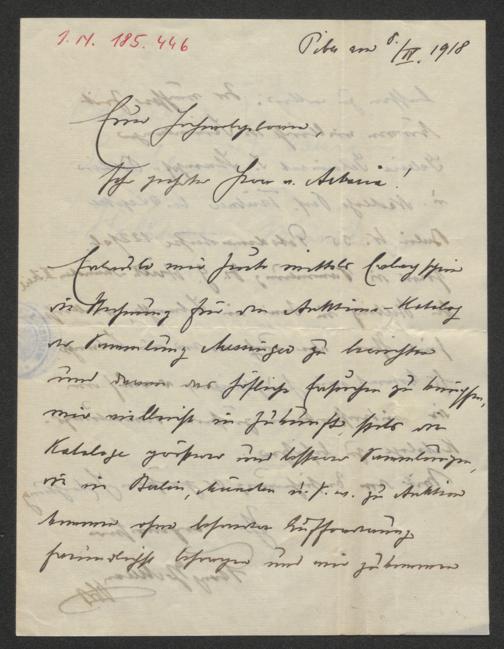 I.N. 185.446
Piber am 8./IV. 1918
Euer Hochwohlgeboren,
Sehr geehrter Herr v.
Erlaube mir heute mittels Erlagschein
die Rechnung für den Auktions-Katalog
der Sammlung Messinger zu begleichen
und daran das höfliche Ersuchen zu knüpfen,
mir vielleicht in Zukunft stets die
Kataloge größerer und besserer Sammlungen,
die in Berlin, München u. s. w. zu Auktion
kommen ohne besondere Aufforderung
freundlichst besorgen und mir zukommen